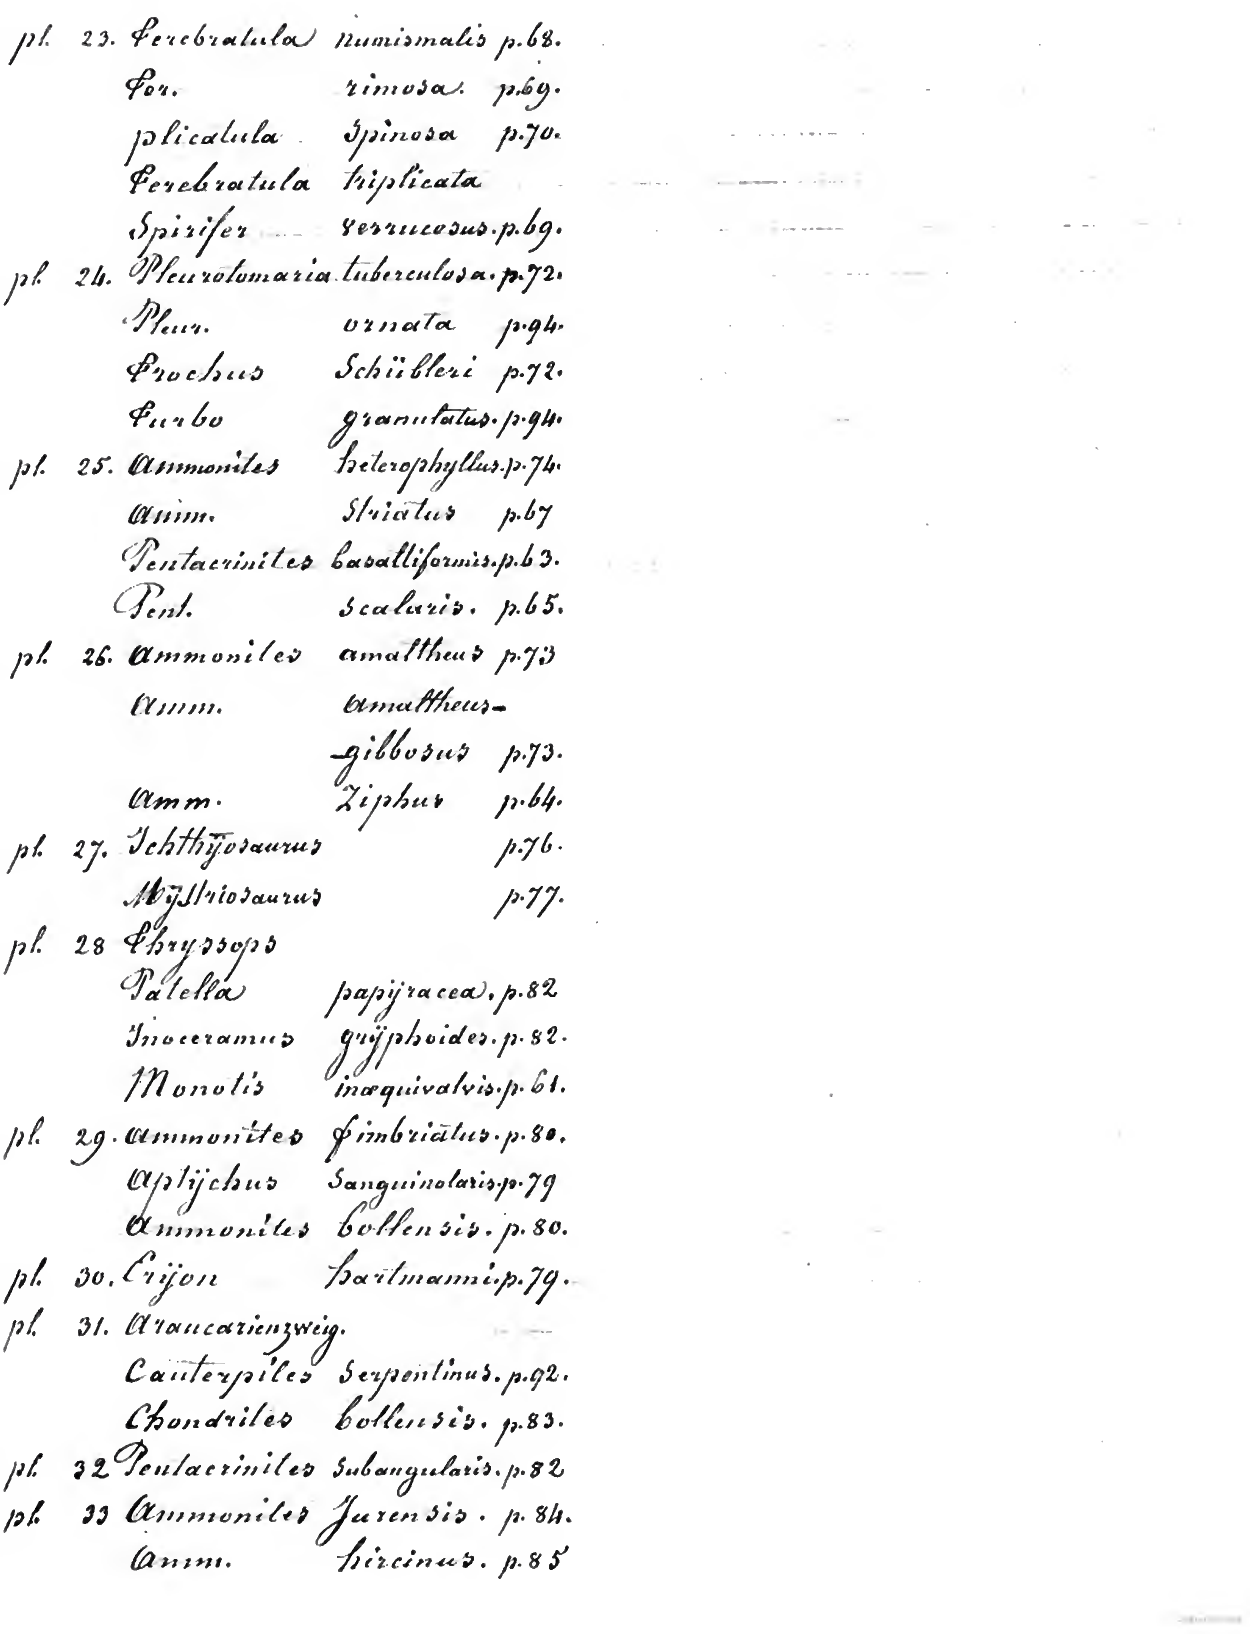 pl. 23. Terebratula numismalis p.68.
Ter. rimosa. p.69.
plicatula Spinosa p.70.
Terebratula triplicata
Spirifer verrucosus. p.69.
pl. 24. Pleurotomaria tuberculosa. p.72.
Pleur. ornata p.94.
Trochus Schübleri p.72.
Turbo granulatus. p.94.
pl. 25. Ammonites heterophyllus. p.74.
Amm. Striatus p.67
Pentacrinites basaltiformis. p.63.
Pent. Scalaris. p.65.
pl. 26. Ammonites amaltheus p.73
Amm. Amaltheus-
-gibbosus p.73.
Amm. Ziphus p.64.
pl. 27. Ichthÿosaurus p.76.
Mÿstriosaurus p.77.
pl. 28 Thryssops
Patella papÿracea. p.82
Inoceramus grÿphoides. p.82.
Monotis inæquivalvis. p.61.
pl. 29. Ammonites fimbriatus. p.80.
Aptÿchus Sanguinolaris. p.79
Ammonites bollensis. p.80.
pl. 30. Erÿon hartmanni. p.79.
pl. 31. Araucarienzweig.
Cauterpites Serpentinus. p.92.
Chondrites bollensis. p.83.
pl. 32 Pentacrinites Subangularis. p.82
pl. 33 Ammonites Jurensis. p.84.
Amm. hircinus. p.85